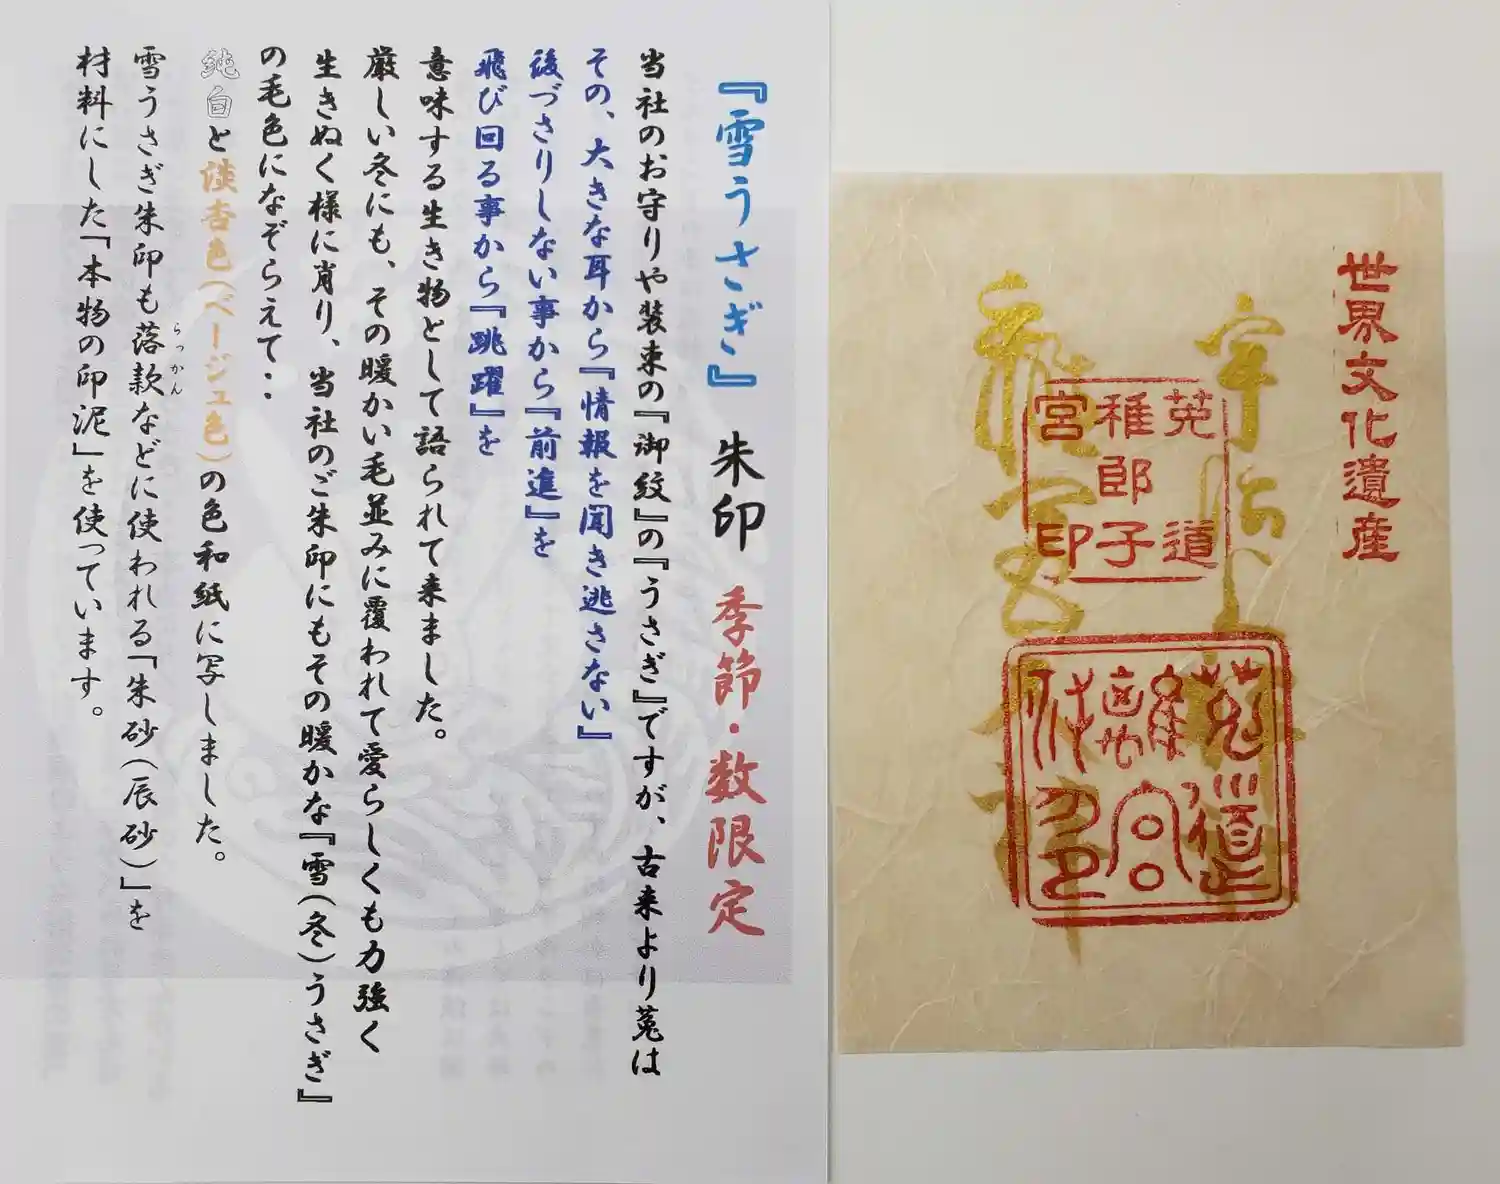 『雪うさぎ』 朱印 季節・数限定
当社のお守りや装束の『御紋』の『うさぎ』ですが、古来より菟は
その、大きな耳から『情報を聞き逃さない』
後づさりしない事から『前進』を
飛び回る事から『跳躍』を
意味する生き物として語られて来ました。
厳しい冬にも、その暖かい毛並みに覆われて愛らしくも力強く
生きぬく様に肖り、当社のご朱印にもその暖かな『雪(冬)うさぎ』
の毛色になぞらえて・・
純白と淡杏色(ベージュ色)の色和紙に写しました。
雪うさぎ朱印も落款などに使われる「朱砂(辰砂)」を
らっかん
材料にした「本物の印泥」を使っています。
世界文化遺産
宇治上
神宮
菟道
稚郎子
宮印
菟道
離宮